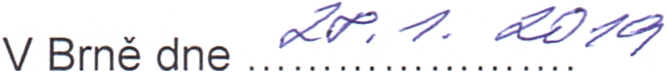 V Brně dne 28. 1. 2019